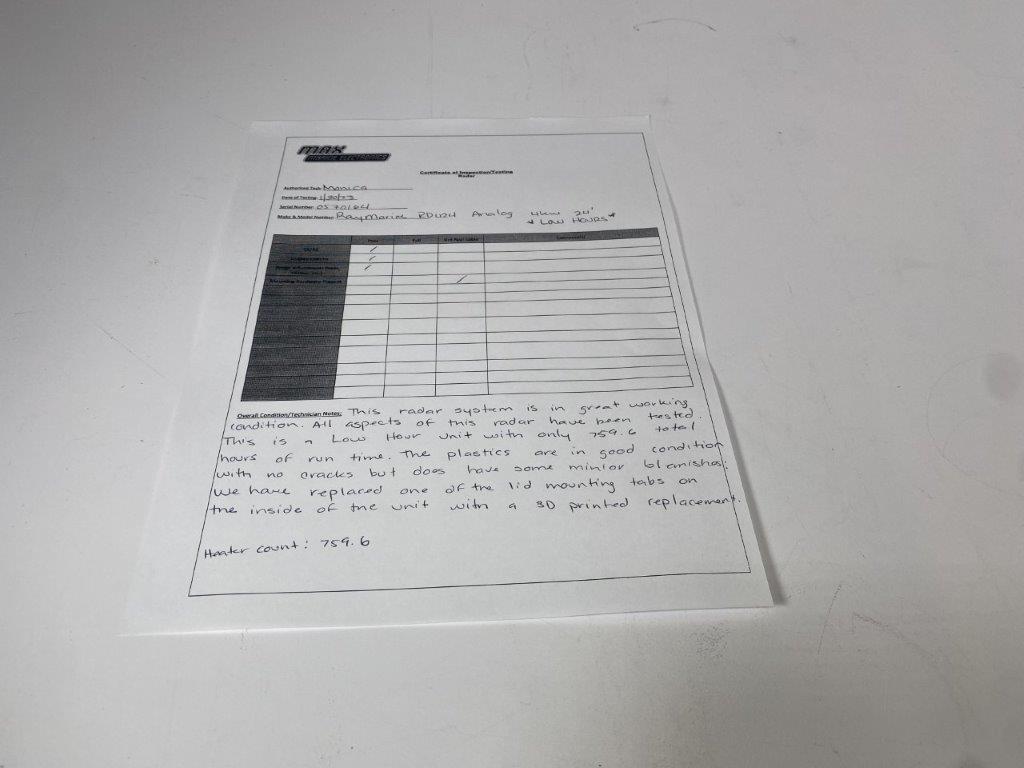 MAX
MARINE ELECTRONICS
Certificate of Inspection/Testing
Radar
Authorized Tech: Monica
Date of Testing: 1/30/23
Serial Number:
Make & Model Number: RayMarine RD424 Analog 4kw 24"
* Low HOURS *
Pass Fail Comments
Overall Condition/Technician Notes: This radar system is in great working
condition. All aspects of this radar have been tested.
This is a Low Hour Unit with only 759.6 total
hours of run time. The plastics are in good condition
with no cracks but does have some minior blemishes.
We have replaced one of the lid mounting tabs on
the inside of the unit with a 3D printed replacement.
Heater count: 759.6